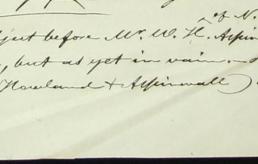 of N.
ject before Mr. W. H. Aspin
, but as yet in vain.
Howland & Aspinwall)